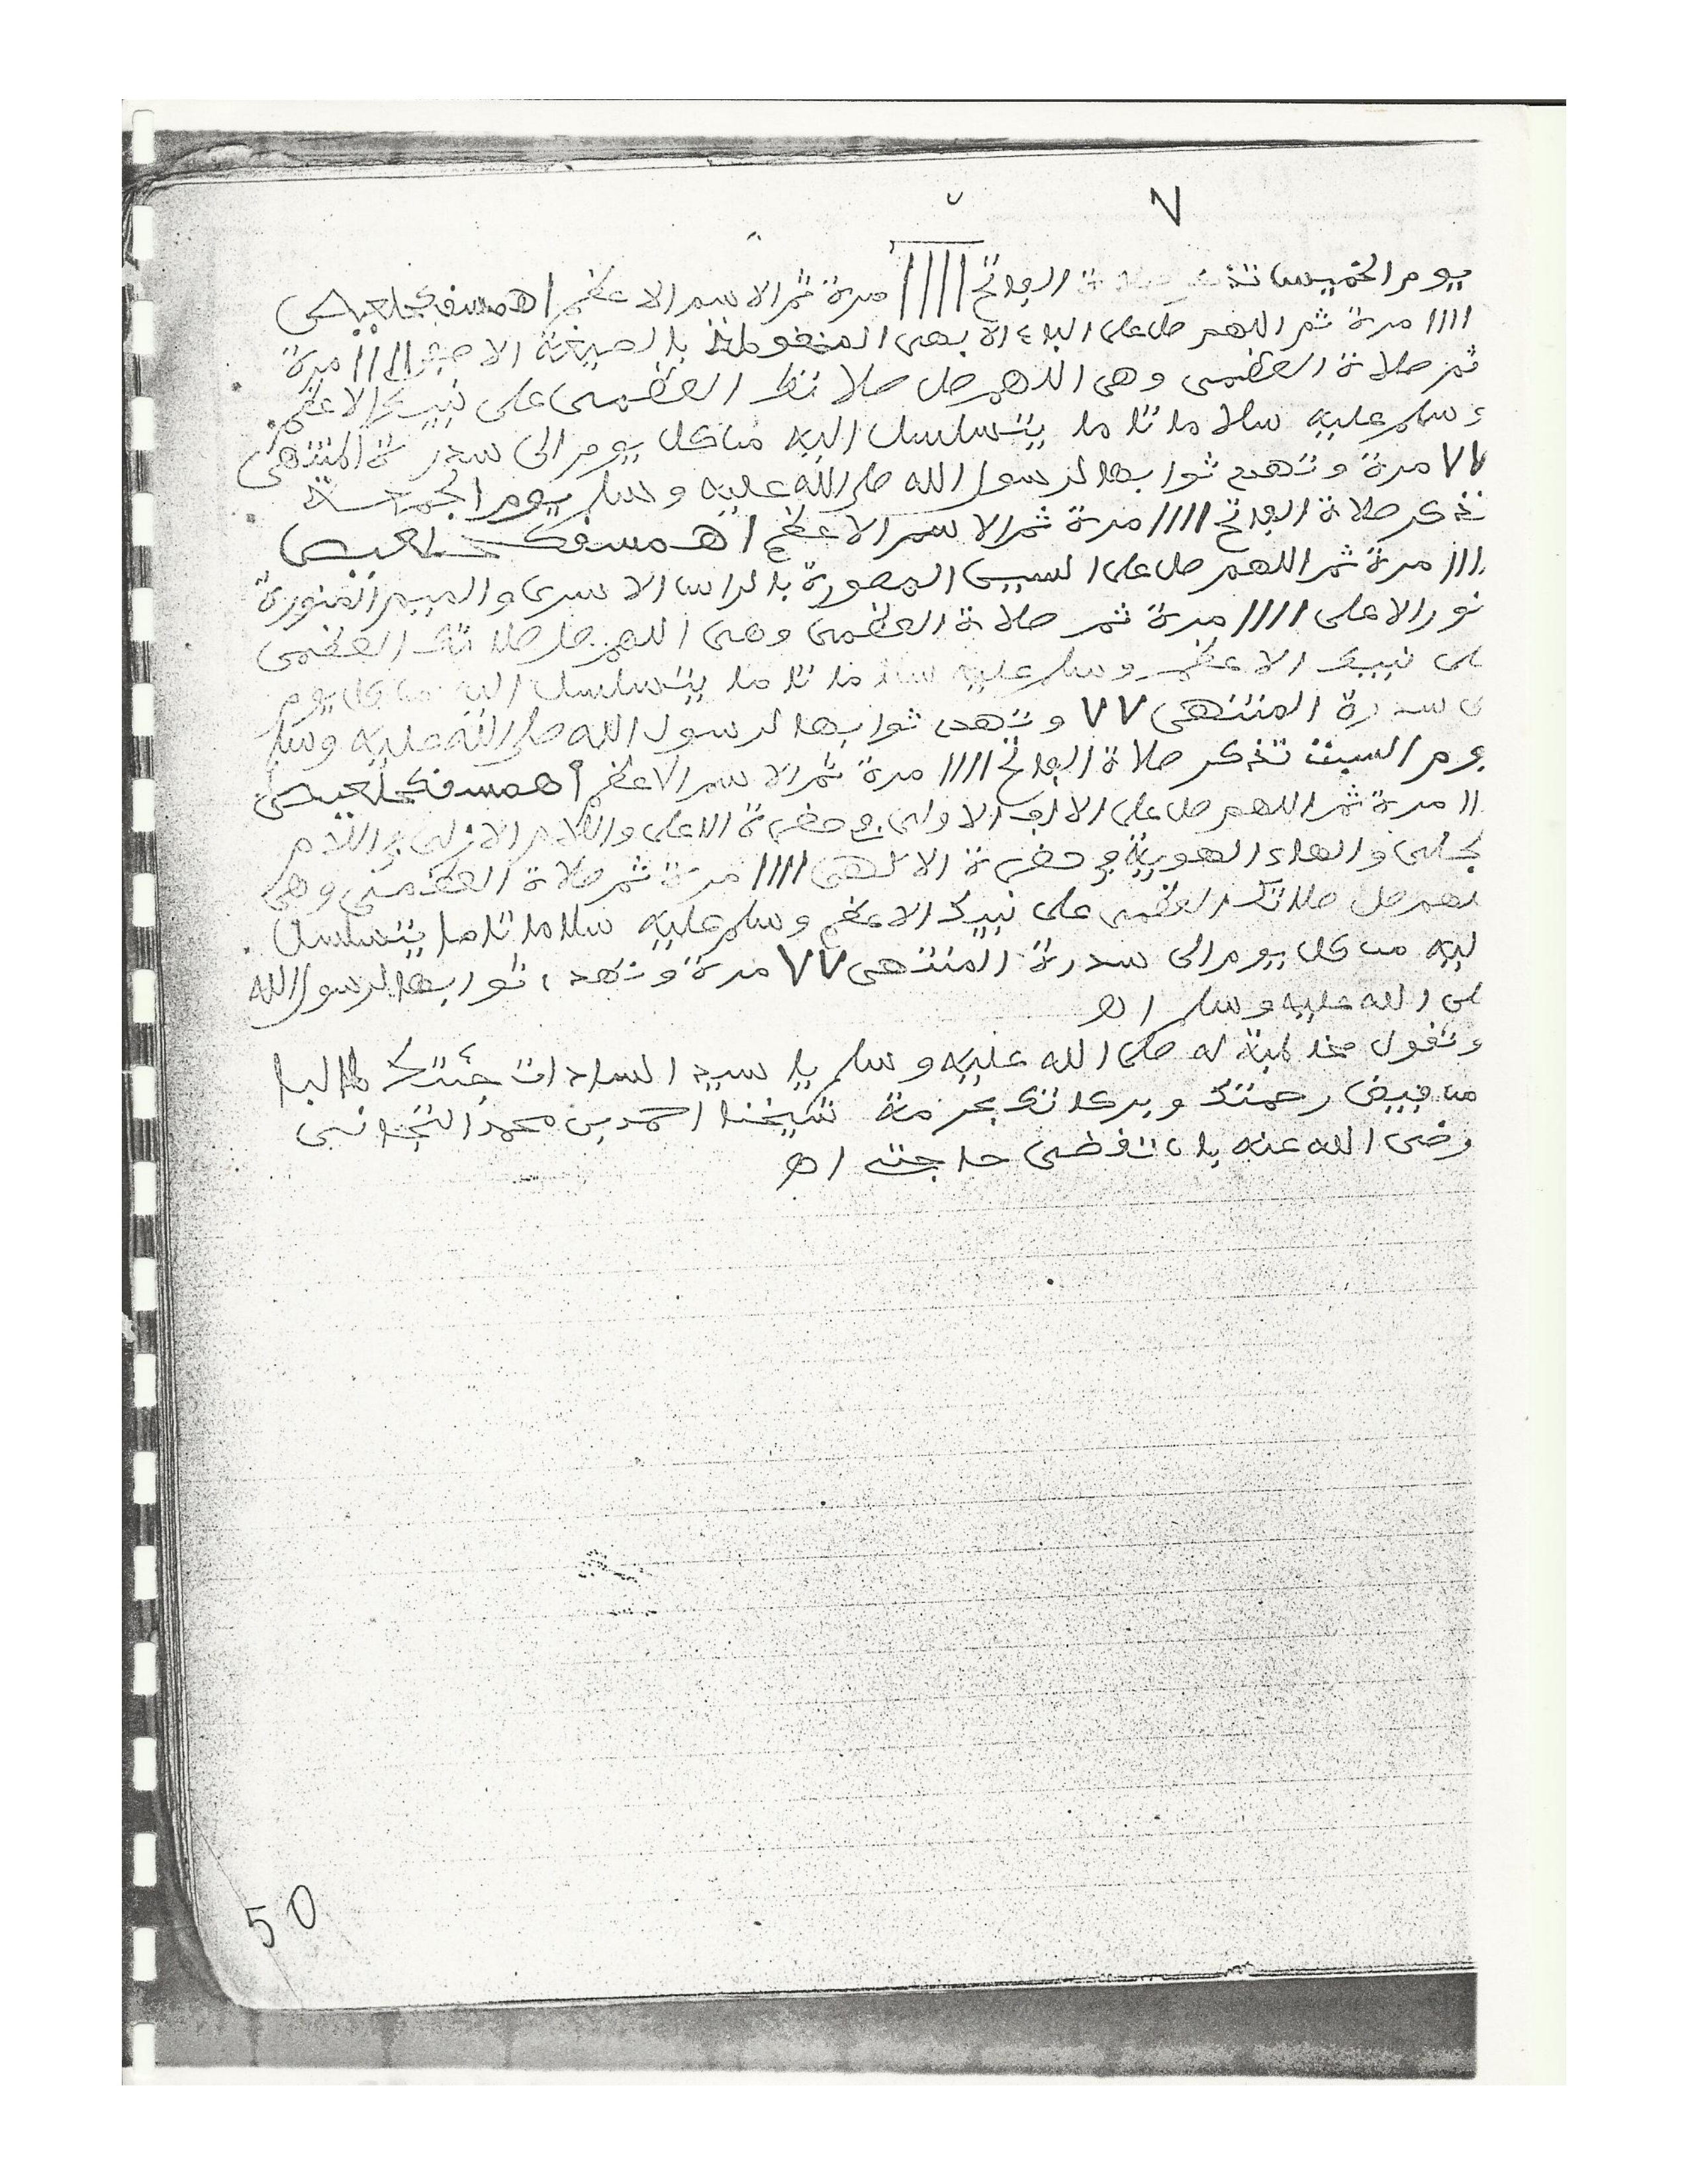 ٧
يوم الخميس تذكر صلاة الفاتح ١١١١ مرة ثم الاسم الاعظم اهمسفكحلعيص
١١١١ مرة ثم اللهم صل على الباء الابهى المنقوطة بالصيغة ١١١١ مرة
ثم صلاة العظمى وهى اللهم صل صلاتك العظمى على نبيك الاعظم
وسلم عليه سلاما تاما يتسلسل اليه من كل يوم الى سدرة المنتهى
٧٧ مرة وتهدى ثوابها لرسول الله صلى الله عليه وسلم يوم الجمعة
تذكر صلاة الفاتح ١١١١ مرة ثم الاسم الاعظم اهمسفكحلعيص
١١١ مرة ثم اللهم صل على السين المصورة بالراس الاسرى والميم المنورة
نور الاعلى ١١١١ مرة ثم صلاة العظمى وهى اللهم صل صلاتك العظمى
لى نبيك الاعظم وسلم عليه سلاما تاما يتسلسل اليه من كل يوم
ى سدرة المنتهى ٧٧ وتهدى ثوابها لرسول الله صلى الله عليه وسلم
يوم السبت تذكر صلاة الفاتح ١١١١ مرة ثم الاسم الاعظم أهمسفكحلعيص
١١ مرة ثم اللهم صل على الالف الاولى فى حضرة الاعلى واللام الازلى فى اللام
والهاء الهوية فى حضرة الالهى ١١١١ مرة ثم صلاة العظمى وهى
لهم صل صلاتك العظمى على نبيك الاعظم وسلم عليه سلاما تاما يتسلسل
ليه من كل يوم الى سدرة المنتهى ٧٧ مرة وتهدى ثوابها لرسول الله
لى الله عليه وسلم اھ
وتقول مخاطبة له صلى الله عليه وسلم يا سيد السادات جئتك طالبا
من فيض رحمتك وبركاتك بحرمة شيخنا احمد بن محمد التجانى
رضى الله عنه بان تقضى حاجتى اھ
50